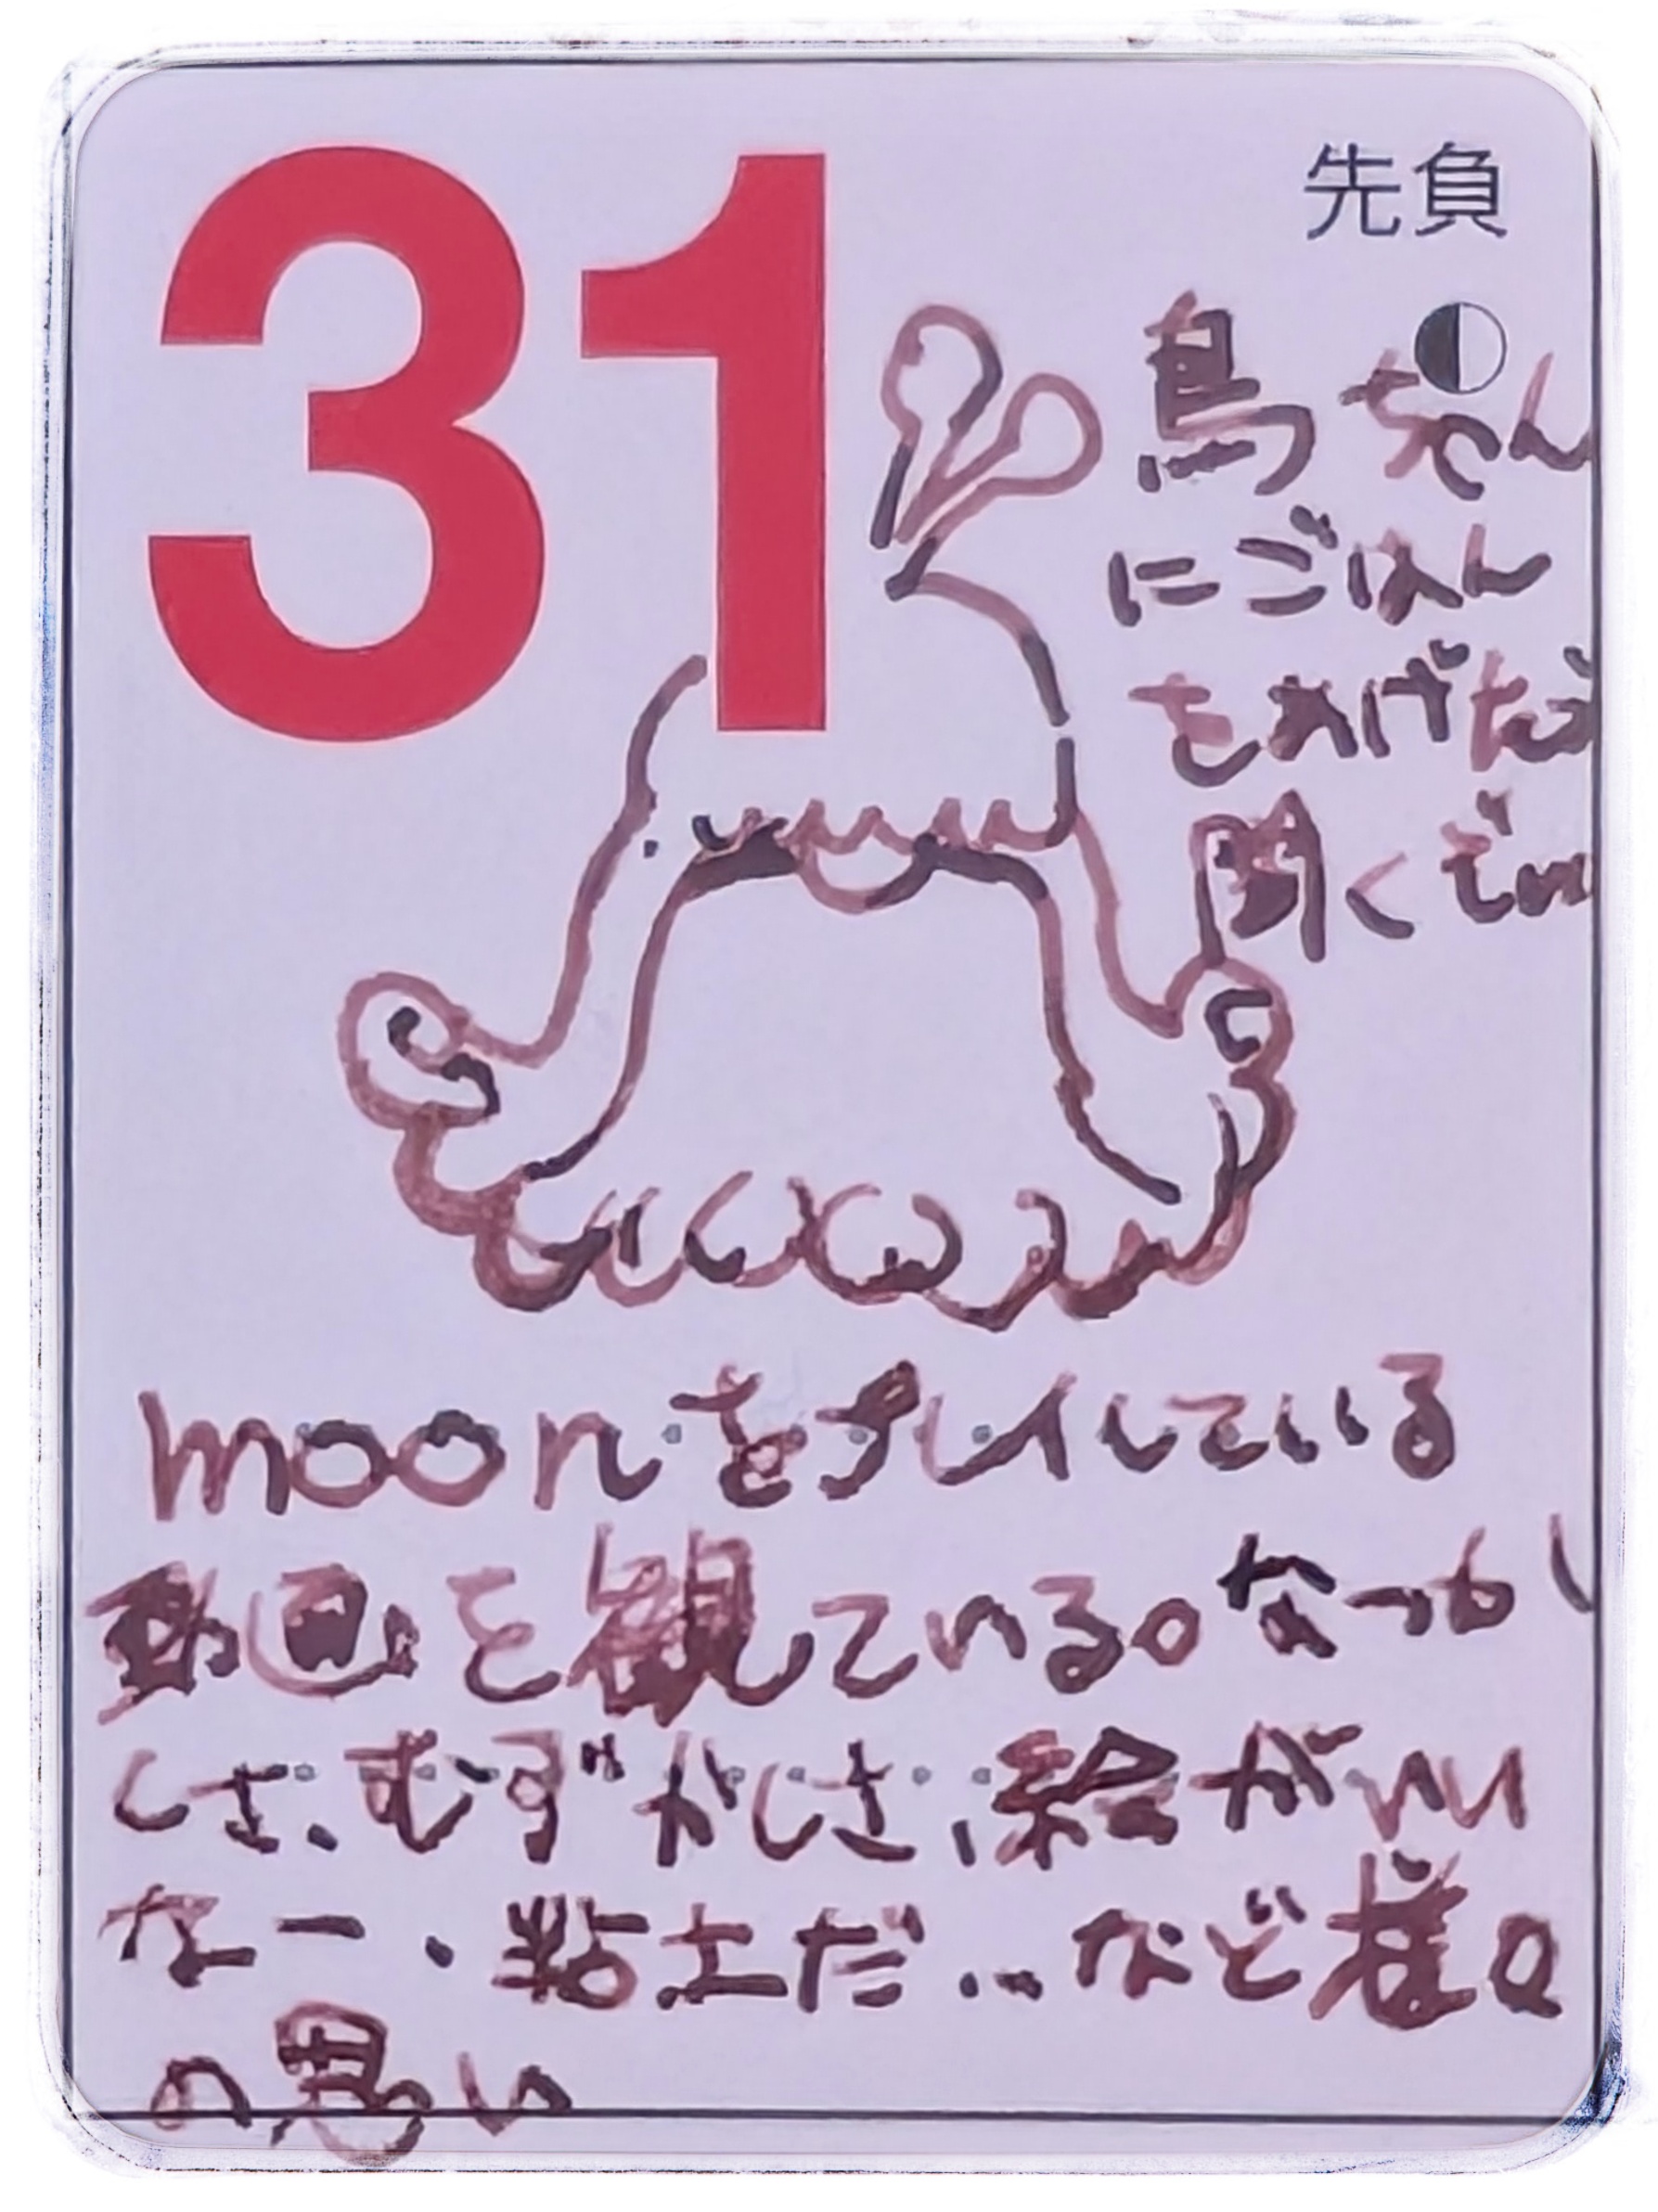 31
先負
鳥ちゃん
にごはん
をあげたら
開くぞい
moonをプレイしている
動画を観ている。なつか
しさ、むずかしさ、絵がいい
なー、粘土だ…など様々
の思い